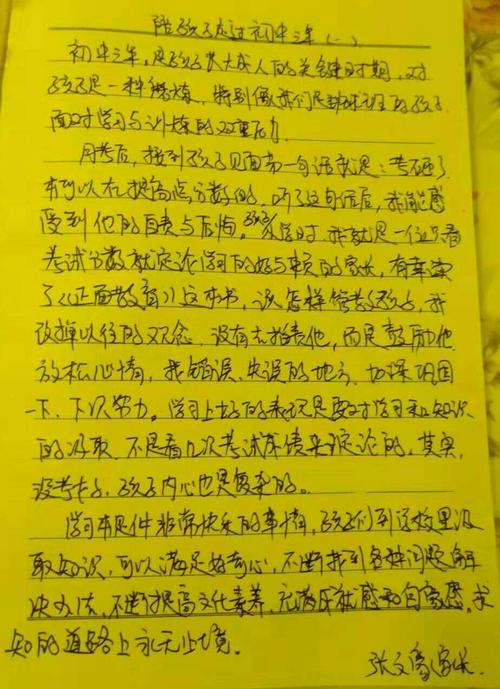 陪孩子走过初中三年(一)
初中三年,是孩子长大成人的关键时期,对
孩子是一种锻炼,特别像我们足球班的孩子
面对学习与训练的双重压力
月考后,接到孩子见面第一句话就是:考砸了
本可以在提高点分数的,听了这句话后,我能感
受到他的自责与后悔。孩子小学时,我就是一位只看
考试分数就定论学习的好与赖的家长,有幸读
了《正面教育》这本书,该怎样管教孩子,我
改掉以往的观念,没有去指责他,而是鼓励他
放松心情,找错误、失误的地方,加深巩固
一下,下次努力。学习上好的表现是要对学习和知识
的汲取,不是看几次考试成绩来定论的。其实,
没考好,孩子内心也是复杂的。
学习本是件非常快乐的事情,孩子们到学校里汲
取知识,可以满足好奇心,不断找到各种问题解
决办法,不断提高文化素养,充满成就感和自豪感,求
知的道路上永无止境。
张文 家长